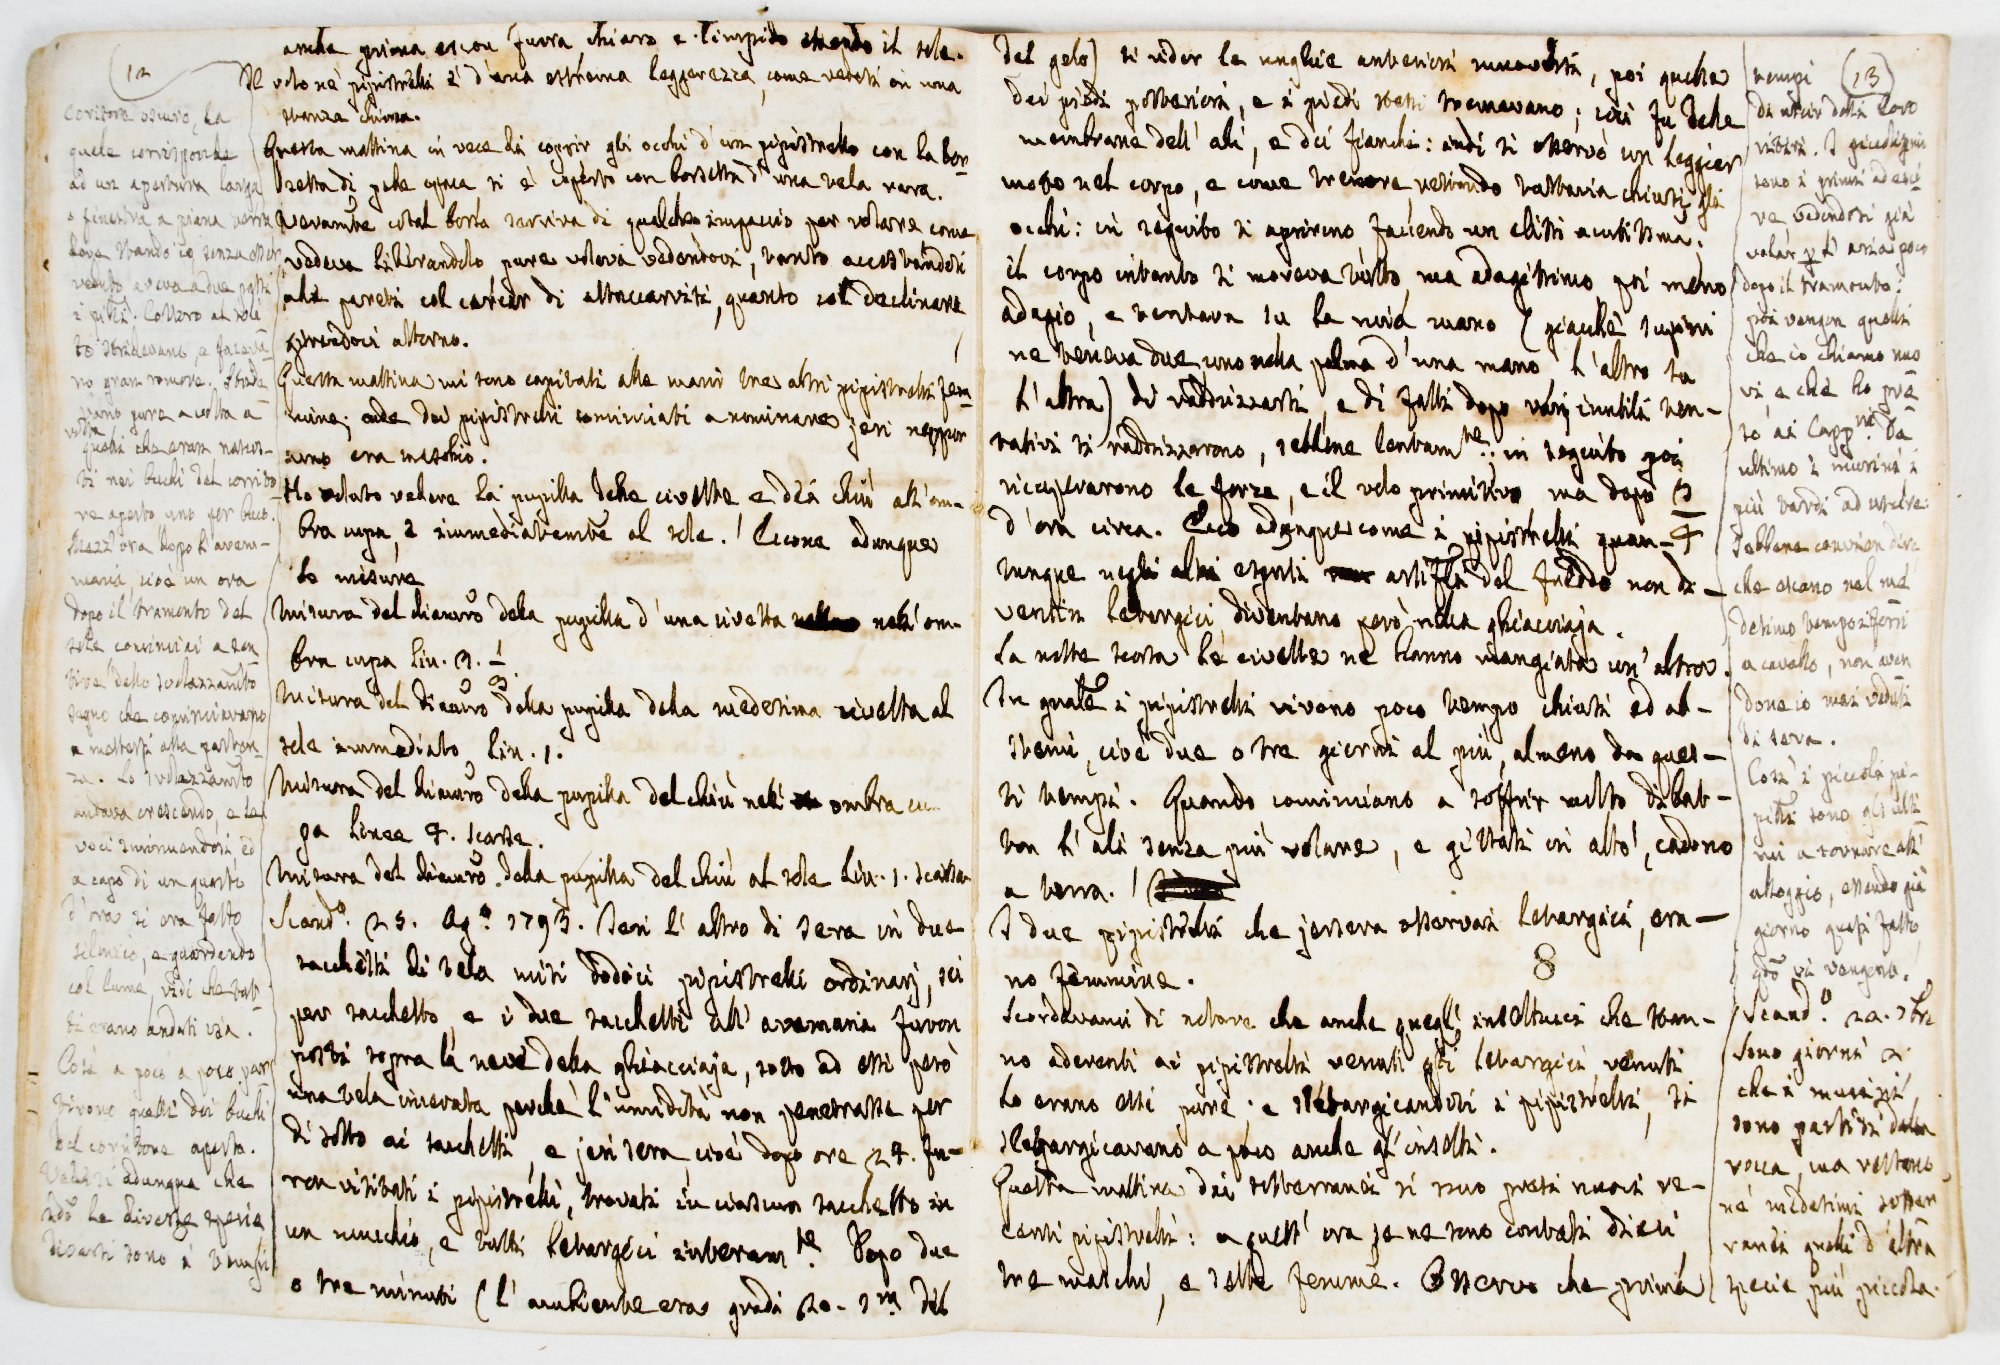 12
anche prima escon fuora chiaro e limpido essendo il sole.
Il volo ne' pipistrelli è d'una estrema leggerezza, come vedesi in una
stanza chiusa.
Questa mattina in vece di coprir gli occhi d'un pipistrello con la bor-
setta di pelle si è coperto con borsetta d'una tela rara.
cotal borsa serviva di qualche impaccio per volare come
vedeva liberandolo, pure volava vedendoci, tanto accostandosi
alle pareti col cercar di attaccarvisi, quanto col declinare
girandoci attorno.
Questa mattina mi sono capitati alle mani tre altri pipistrelli fem-
mine; onde dai pipistrelli cominciati a nominare jeri neppur
uno era maschio.
Ho voluto vedere la pupilla delle civette e del chiù all'om-
bra cupa, e immediatamente al sole. Eccone adunque
le misure
Misura del diametro della pupilla d'una civetta nell'om-
bra cupa lin. 3. 1/3
Misura del diametro della pupilla della medesima rivolta al
sole immediato, lin. 1.
Misura del diametro della pupilla del chiù nell' ombra cu-
pa linee 4. scarse.
Misura del diametro della pupilla del chiù al sole lin. 1. scarsa
Scand.o 25. Ag.o 1793. Jeri l'altro di sera in due
sacchetti di tela misi dodici pipistrelli ordinarj, sei
per sacchetto, e i due sacchetti all'avemaria furon
posti sopra la neve della ghiacciaja, sotto ad essi però
una tela incerata perché l'umidità non penetrasse per
di sotto ai sacchetti, e jeri sera cioè dopo ore 24. fu-
ron visitati i pipistrelli, trovati in ciascun sacchetto in
un mucchio, e tutti letargici interam.te Dopo due
o tre minuti (l'ambiente era gradi 20. del
Corritore oscuro, la
quale corrisponde
ad un apertura larga
o finestra a piana terra
dove stando io senza esser
veduto
volta
quelli che eran nascos-
ti nei buchi del corrito-
re aperto uno per buco.
Mezz'ora dopo l'avem-
maria, cioè un ora
dopo il tramonto del
sole cominciai a sen-
tire dello svolazzamto
segno che cominciavano
a mettersi alla parten-
za. Lo svolazzamto
andava crescendo, e le
voci sminuendosi ed
a capo di un quarto
d'ora si era fatto
silenzio, e guardando
col lume, vidi che tut-
ti erano andati via.
Così a poco a poco par-
tirono quelli dei buchi
del corritore aperto.
Vedasi adunque che
le diverse specie
diversi sono i tempi
13
del gelo) si vider le unghie anteriori muoversi, poi quelle
dei piedi posteriori, e i piedi stessi tremavano; così fu delle
membrane dell'ali, e dei fianchi: indi si osservò un leggier
moto nel corpo, e come tremore, restando tuttavia chiusi gli
occhi: in seguito si aprirono facendo un ellissi acutissima;
il corpo intanto si moveva tutto, ma adagissimo poi meno
adagio, e tentava su la mia mano (giacchè supini
ne teneva due uno nella palma d'una mano l'altro su
l'altra) di raddrizzarsi, e di fatti dopo varj inutili ten-
tativi si raddrizzarono, sebbene lentam.te: in seguito poi
ricuperarono le forze, e il volo primitivo ma dopo 3/4
d'ora circa. Ecco adunque come i pipistrelli quan-
tunque negli altri esposti artif.li del freddo non di-
ventin letargici, diventano però nella ghiacciaja.
La notte scorsa le civette ne hanno mangiata un'altra.
In gnale i pipistrelli vivono poco tempo chiusi ed as-
temi, cioè due o tre giorni al più, almeno da ques-
ti tempi. Quando cominciano a soffrir molto dibat-
ton l'ali senza più volare, e gittati in alto, cadono
a terra.
I due pipistrelli che jersera osservai letargici, era-
no femmine.
8
Scordavami di notare che anche quegl' insettucci che stan-
no aderenti ai pipistrelli venuti letargici
lo erano essi pure: e sletargicandosi i pipistrelli, si
sletargicavano a poco anche gl'insetti.
Questa mattina dai sotterranei si sono presi nuovi re-
centi pipistrelli: a quest'ora se ne sono contati dieci
tre maschi, e sette femmine. Osservo che prima
tempi
di uscir dalli loro
ritiri. I piccolissimi
sono i primi ad esci-
re vedendosi già
volar p l'aria poco
dopo il tramonto:
poi vengon quelli
che io chiamo nuo-
vi e che ho pre-
so ai Capp.ni Da
ultimo i murini i
più tardi ad uscire.
Sebbene convien dire
che escano nel me-
desimo tempo i ferri
a cavallo, non aven-
done io mai veduti
di sera.
Così i piccoli pi-
pistli sono gli ulti-
mi a tornare all'
alloggio, essendo già
giorno quasi fatto,
qdo vi vengono.
Scand.o 22. 7bre
Sono giorni 2.
che i murini
sono partiti dalla
rocca, ma restano
ne' medesimi sotter-
ranei quelli d'altra
specie più piccola.